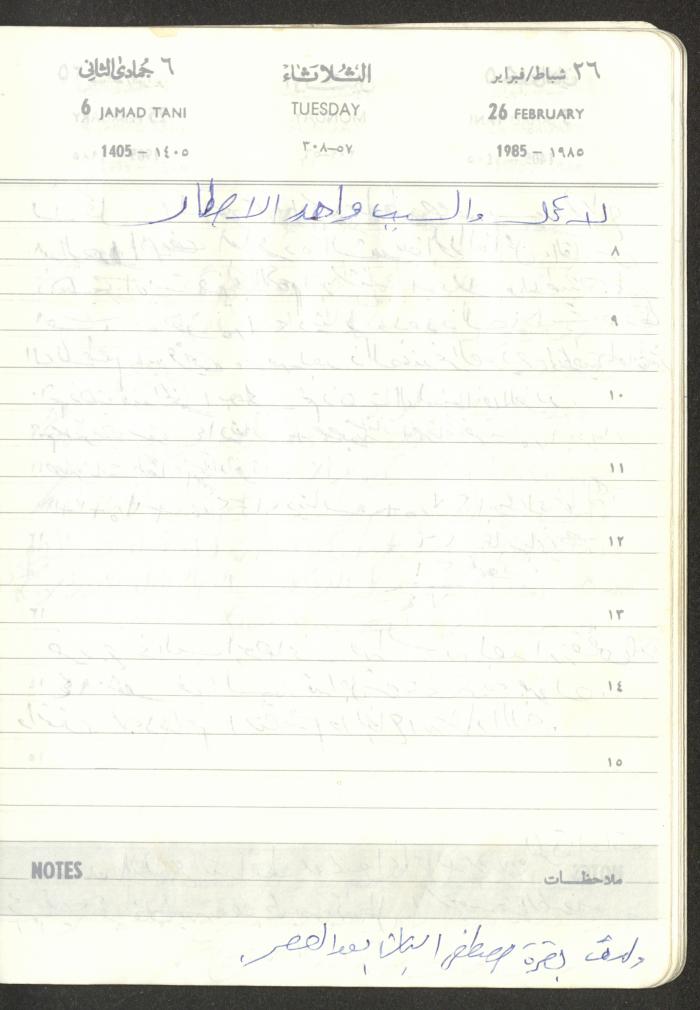 ٢٦ شباط/فبراير الثلاثاء ٦ جمادى الثاني
26 FEBRUARY TUESDAY 6 JAMAD TANI
1985 – ١٩٨٥ ٥٧–٣٠٨ 1405 – ١٤٠٥
لا عمل والسبب واحد الامطار
٨
٩
١٠
١١
١٢
١٣
١٤
١٥
NOTES ملاحظات
ولدت بقرة مصطفى البنات بعد العصر.